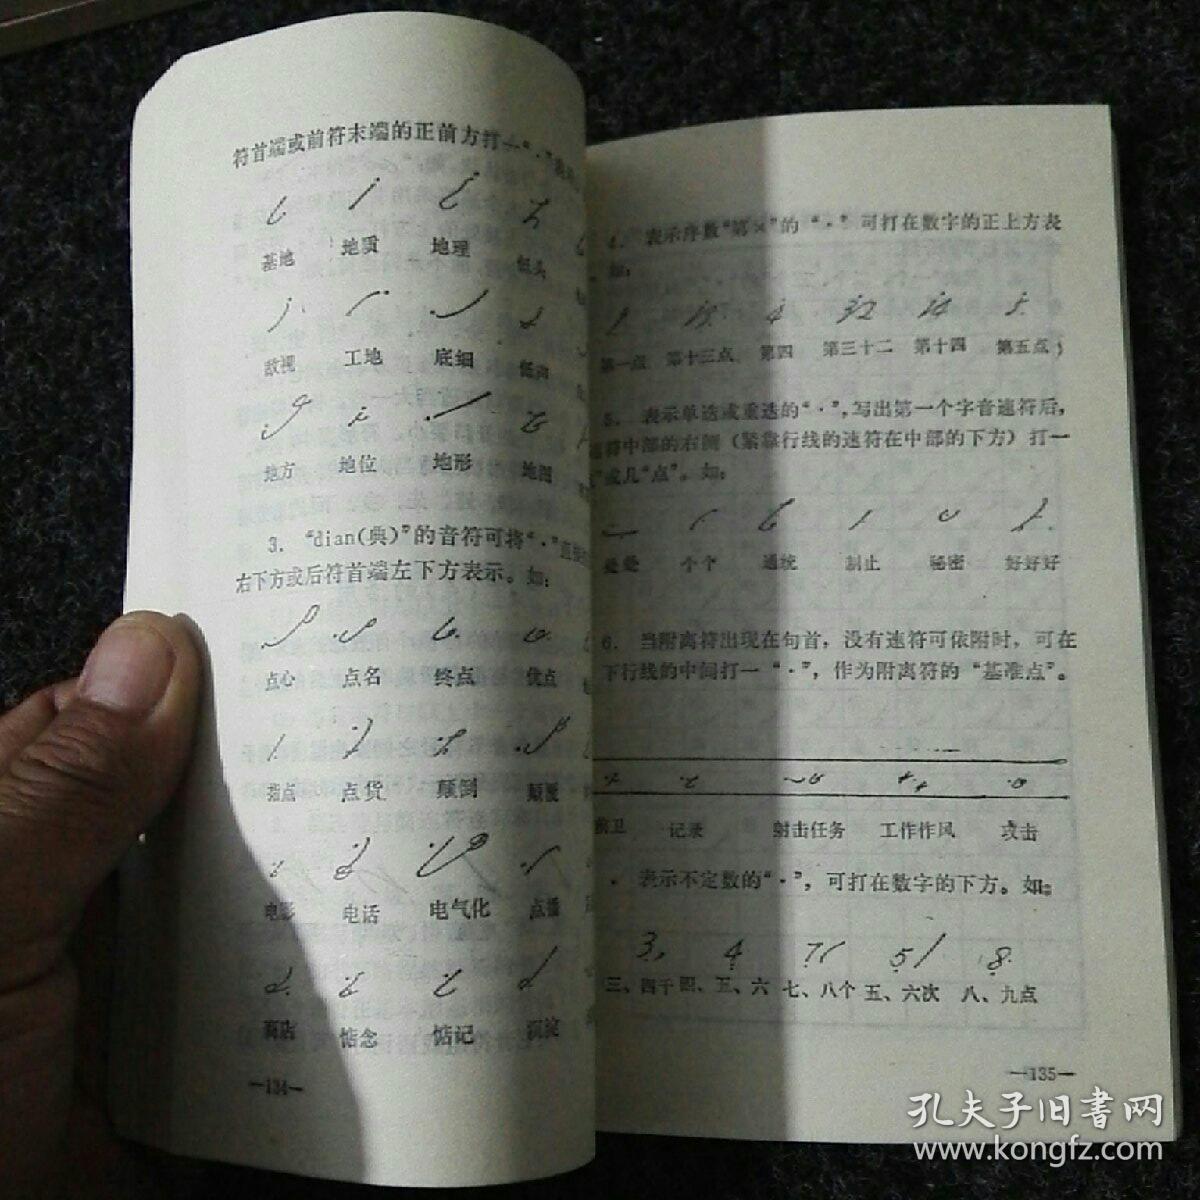 符首端或前符末端的正前方打一“·”表示。
基地 地质 地理 低头
敌视 工地 底细 低声
地方 地位 地形 地图
3. “dian(典)”的音符可将“·”
右下方或后符首端左下方表示。如：
点心 点名 终点 优点
指点 点货 颠倒 颠覆
电影 电话 电气化 点播
商店 惦念 惦记 沉淀
—134—
4. 表示序数“第×”的“·”可打在数字的正上方表
如：
第一点 第十三点 第四 第三十二 第十四 第五点
5. 表示单迭或重迭的“·”，写出第一个字音速符后，
速符中部的右侧（紧靠行线的速符在中部的下方）打一
或几“点”。如：
处处 个个 通统 制止 秘密 好好好
6. 当附离符出现在句首，没有速符可依附时，可在
下行线的中间打一“·”，作为附离符的“基准点”。
前卫 记录 射击任务 工作作风 攻击
表示不定数的“·”，可打在数字的下方。如：
3 4 7 5 8
三、四千 四、五、六 七、八个 五、六次 八、九点
—135—
孔夫子旧书网
www.kongfz.com